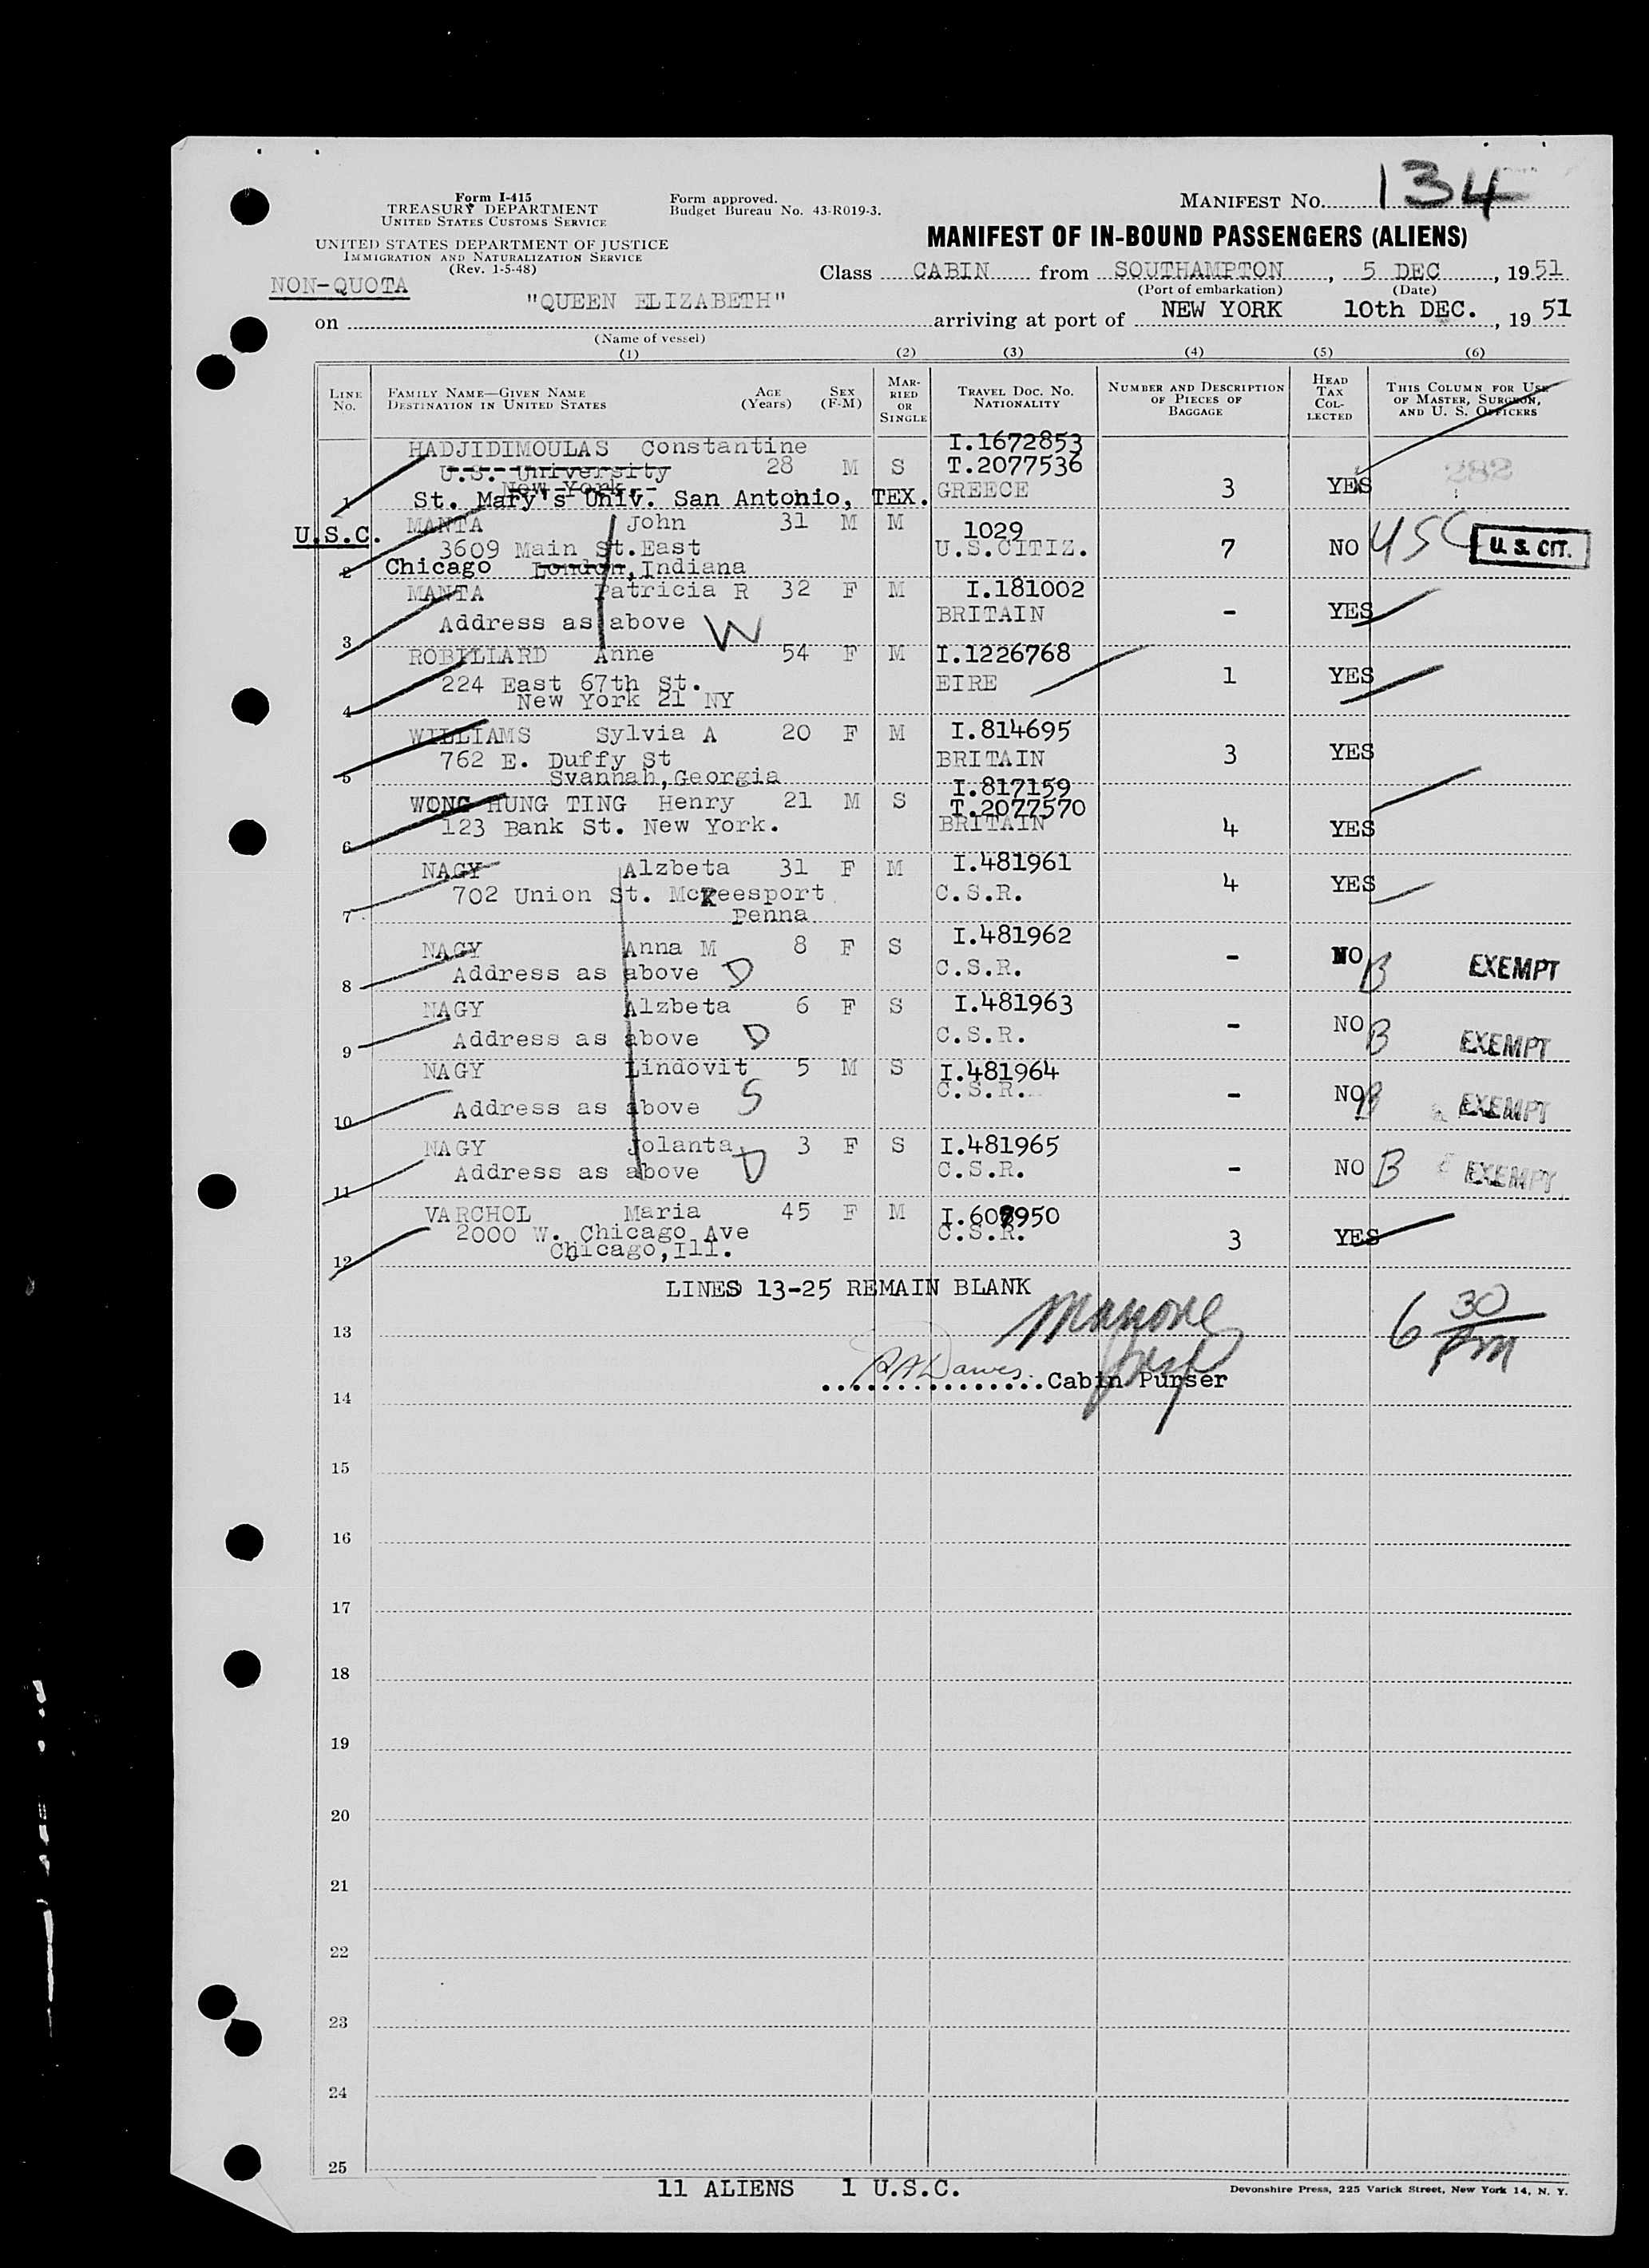 Form I-415
TREASURY DEPARTMENT
UNITED STATES CUSTOMS SERVICE
Form approved.
Budget Bureau No. 43-R019-3.
MANIFEST NO. 134
UNITED STATES DEPARTMENT OF JUSTICE
IMMIGRATION AND NATURALIZATION SERVICE
(Rev. 1-5-48)
MANIFEST OF IN-BOUND PASSENGERS (ALIENS)
NON-QUOTA
Class CABIN from SOUTHAMPTON, 5 DEC, 1951
(Port of embarkation) (Date)
on "QUEEN ELIZABETH" arriving at port of NEW YORK 10th DEC., 1951
(Name of vessel)
(1) (2) (3) (4) (5) (6)
LINE No. FAMILY NAME—GIVEN NAME DESTINATION IN UNITED STATES AGE (Years) SEX (F-M) MARRIED OR SINGLE TRAVEL DOC. NO. NATIONALITY NUMBER AND DESCRIPTION OF PIECES OF BAGGAGE HEAD TAX COLLECTED THIS COLUMN FOR USE OF MASTER, SURGEON, AND U. S. OFFICERS
HADJIDIMOULAS Constantine I.1672853
U.S. University 28 M S T.2077536 282
New York.
1 St. Mary's Univ. San Antonio, TEX. GREECE 3 YES
U.S.C. MANTA John 31 M M 1029
3609 Main St.East U.S.CITIZ. 7 NO USC U. S. CIT.
2 Chicago London, Indiana
MANTA Patricia R 32 F M I.181002
BRITAIN - YES
3 Address as above W
ROBILLARD Anne 54 F M I.1226768
224 East 67th St. EIRE 1 YES
4 New York 21 NY
WILLIAMS Sylvia A 20 F M I.814695
762 E. Duffy St BRITAIN 3 YES
5 Svannah, Georgia
I.817159
WONG HUNG TING Henry 21 M S T.2077570
6 123 Bank St. New York. BRITAIN 4 YES
NAGY Alzbeta 31 F M I.481961
702 Union St. McKeesport C.S.R. 4 YES
7 Penna
NAGY Anna M 8 F S I.481962
8 Address as above D C.S.R. - NO B EXEMPT
NAGY Alzbeta 6 F S I.481963
9 Address as above D C.S.R. - NO B EXEMPT
NAGY Lindovit 5 M S I.481964
C.S.R.
10 Address as above S - NO B EXEMPT
NAGY Jolanta 3 F S I.481965
11 Address as above D C.S.R. - NO B EXEMPT
VARCHOL Maria 45 F M
2000 W. Chicago Ave C.S.R.
12 Chicago, Ill. 3 YES
LINES 13-25 REMAIN BLANK
13 6 30 PM
14 Cabin Purser
15
16
17
18
19
20
21
22
23
24
25
11 ALIENS 1 U.S.C.
Devonshire Press, 225 Varick Street, New York 14, N. Y.